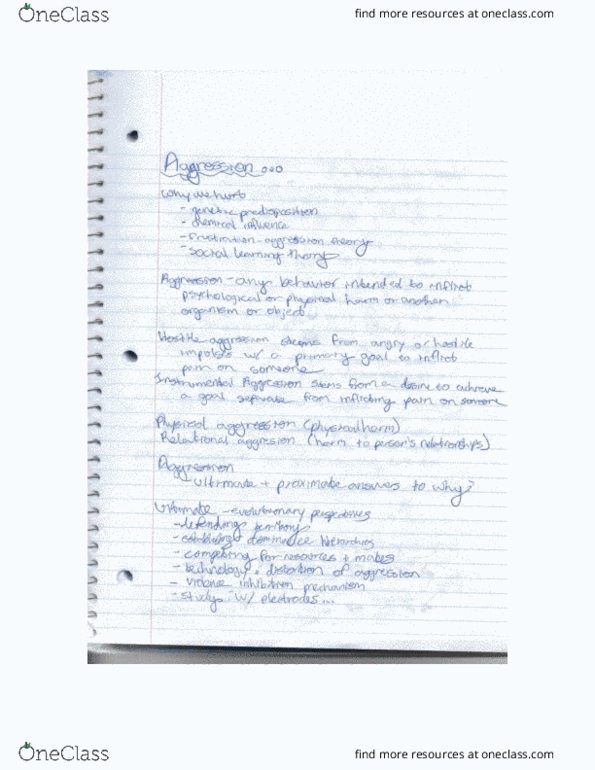 OneClass
find more resources at oneclass.com
Aggression ...
Why we hurt
- genetic predisposition
- chemical influence
- frustration-aggression theory
- social learning theory
Aggression - any behavior intended to inflict
psychological or physical harm on another
organism or object
Hostile aggression stems from angry or hostile
impulses w/ a primary goal to inflict
pain on someone
Instrumental Aggression stems from a desire to achieve
a goal separate from inflicting pain on someone
Physical aggression (physical harm)
Relational aggression (harm to person's relationships)
Aggression
Ultimate + proximate answers to why?
Ultimate - evolutionary perspectives
- defending territory
- dominance hierarchies
- competing for resources + mates
- technology + distortion of aggression
- violence inhibition mechanism
- study w/ electrodes...
OneClass
find more resources at oneclass.com